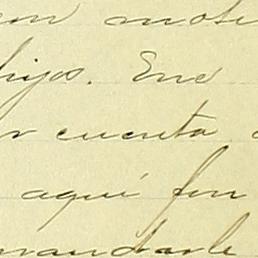 em moti
hijos. Ene
r cuenta
aquí fon
mandarle